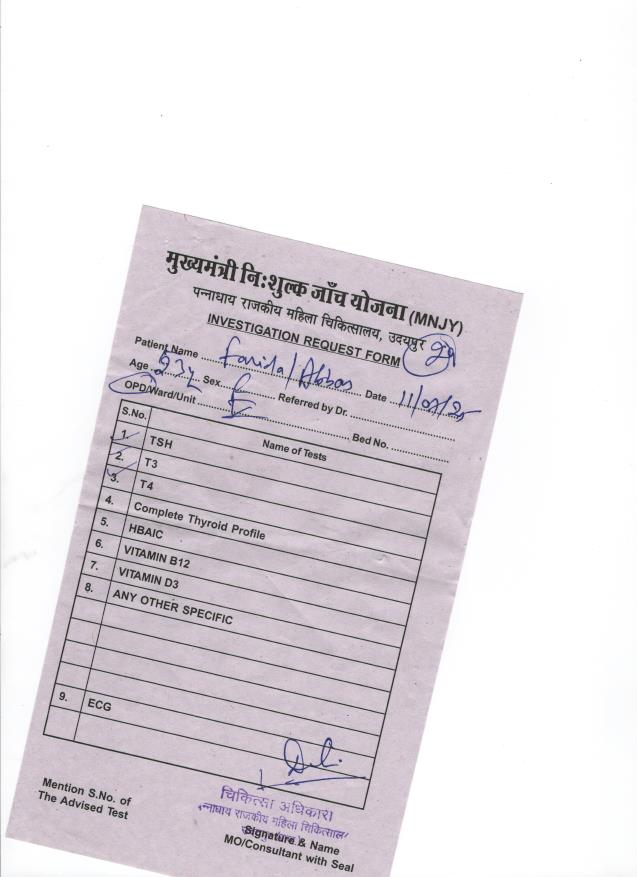 मुख्यमंत्री नि:शुल्क जाँच योजना (MNJY)
पन्नाधाय राजकीय महिला चिकित्सालय, उदयपुर
INVESTIGATION REQUEST FORM
Patient Name Farida/Abbas Date 11/07/25
Age 23y Sex F Referred by Dr.
OPD/Ward/Unit Bed No.
S.No. Name of Tests
1. TSH
2. T3
3. T4
4. Complete Thyroid Profile
5. HBAIC
6. VITAMIN B12
7. VITAMIN D3
8. ANY OTHER SPECIFIC
9. ECG
Mention S.No. of
The Advised Test
चिकित्सा अधिकारी
पन्नाधाय राजकीय महिला चिकित्साल
Signature & Name
MO/Consultant with Seal